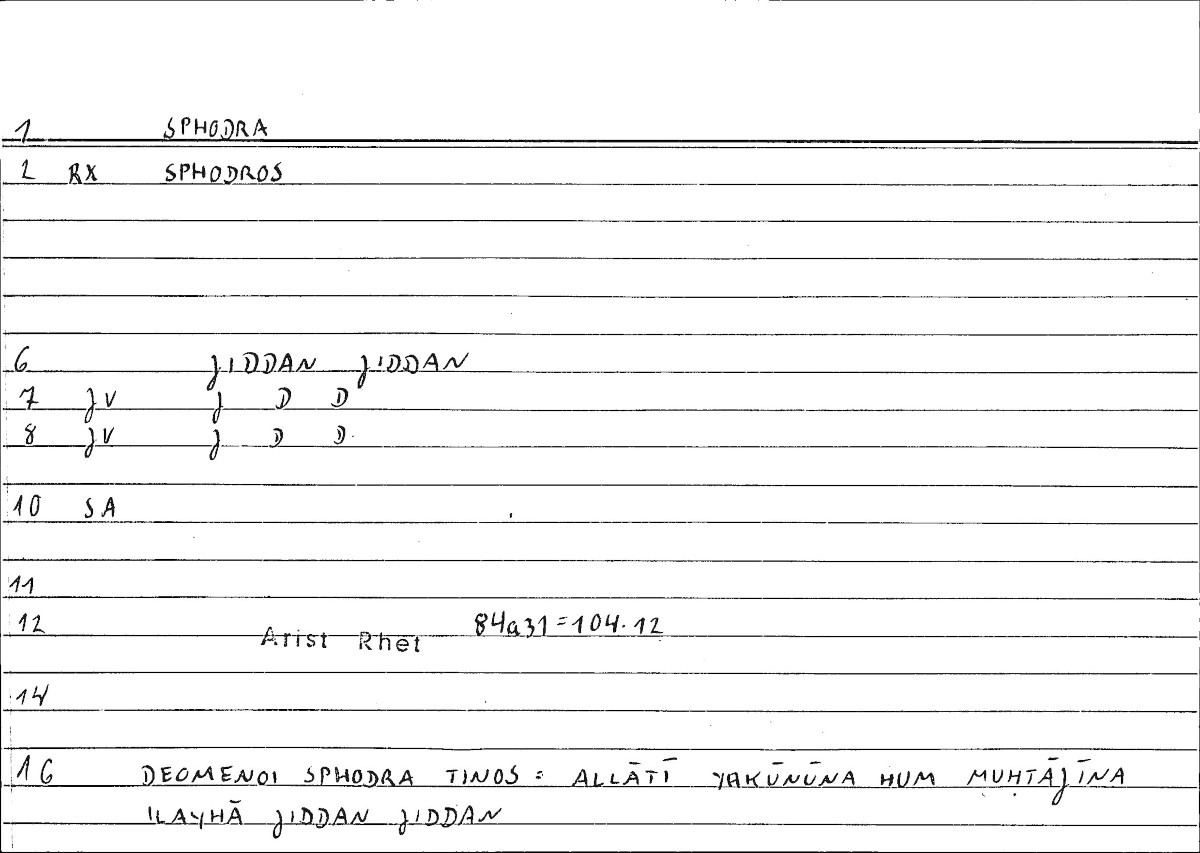 1 SPHODRA
2 RX SPHODROS
6 JIDDAN JIDDAN
7 JV J D D
8 JV J D D
10 SA
11
12 Arist Rhet 84a31=104.12
14
16 DEOMENOI SPHODRA TINOS = ALLĀTĪ YAKŪNŪNA HUM MUḤTĀJĪNA
ILAYHĀ JIDDAN JIDDAN